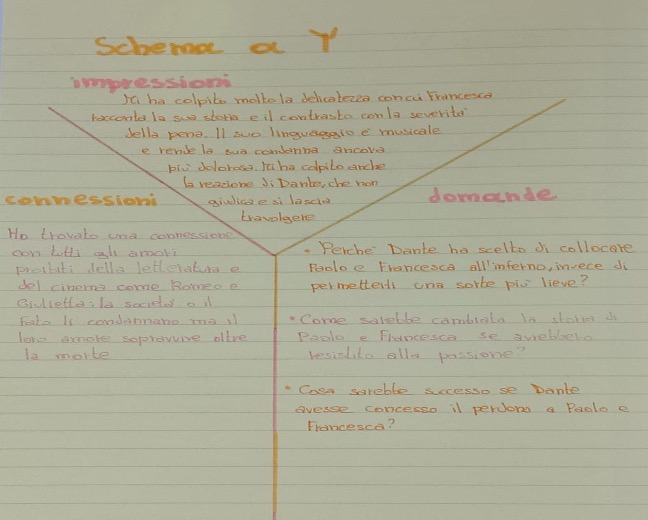 Schema a Y
impressioni
Mi ha colpito molto la delicatezza con cui Francesca
racconta la sua storia e il contrasto con la severità
della pena. Il suo linguaggio è musicale
e rende la sua condanna ancora
più dolorosa. Mi ha colpito anche
la reazione di Dante, che non
giudica e si lascia
travolgere
connessioni
Ho trovato una connessione
con tutti gli amori
proibiti della letteratura e
del cinema come Romeo e
Giulietta: la società o il
fato li condannano ma il
loro amore sopravvive oltre
la morte
domande
• Perché Dante ha scelto di collocare
Paolo e Francesca all'inferno, invece di
permetterli una sorte più lieve?
• Come sarebbe cambiata la storia di
Paolo e Francesca se avrebbero
resistito alla passione?
• Cosa sarebbe successo se Dante
avesse concesso il perdono a Paolo e
Francesca?